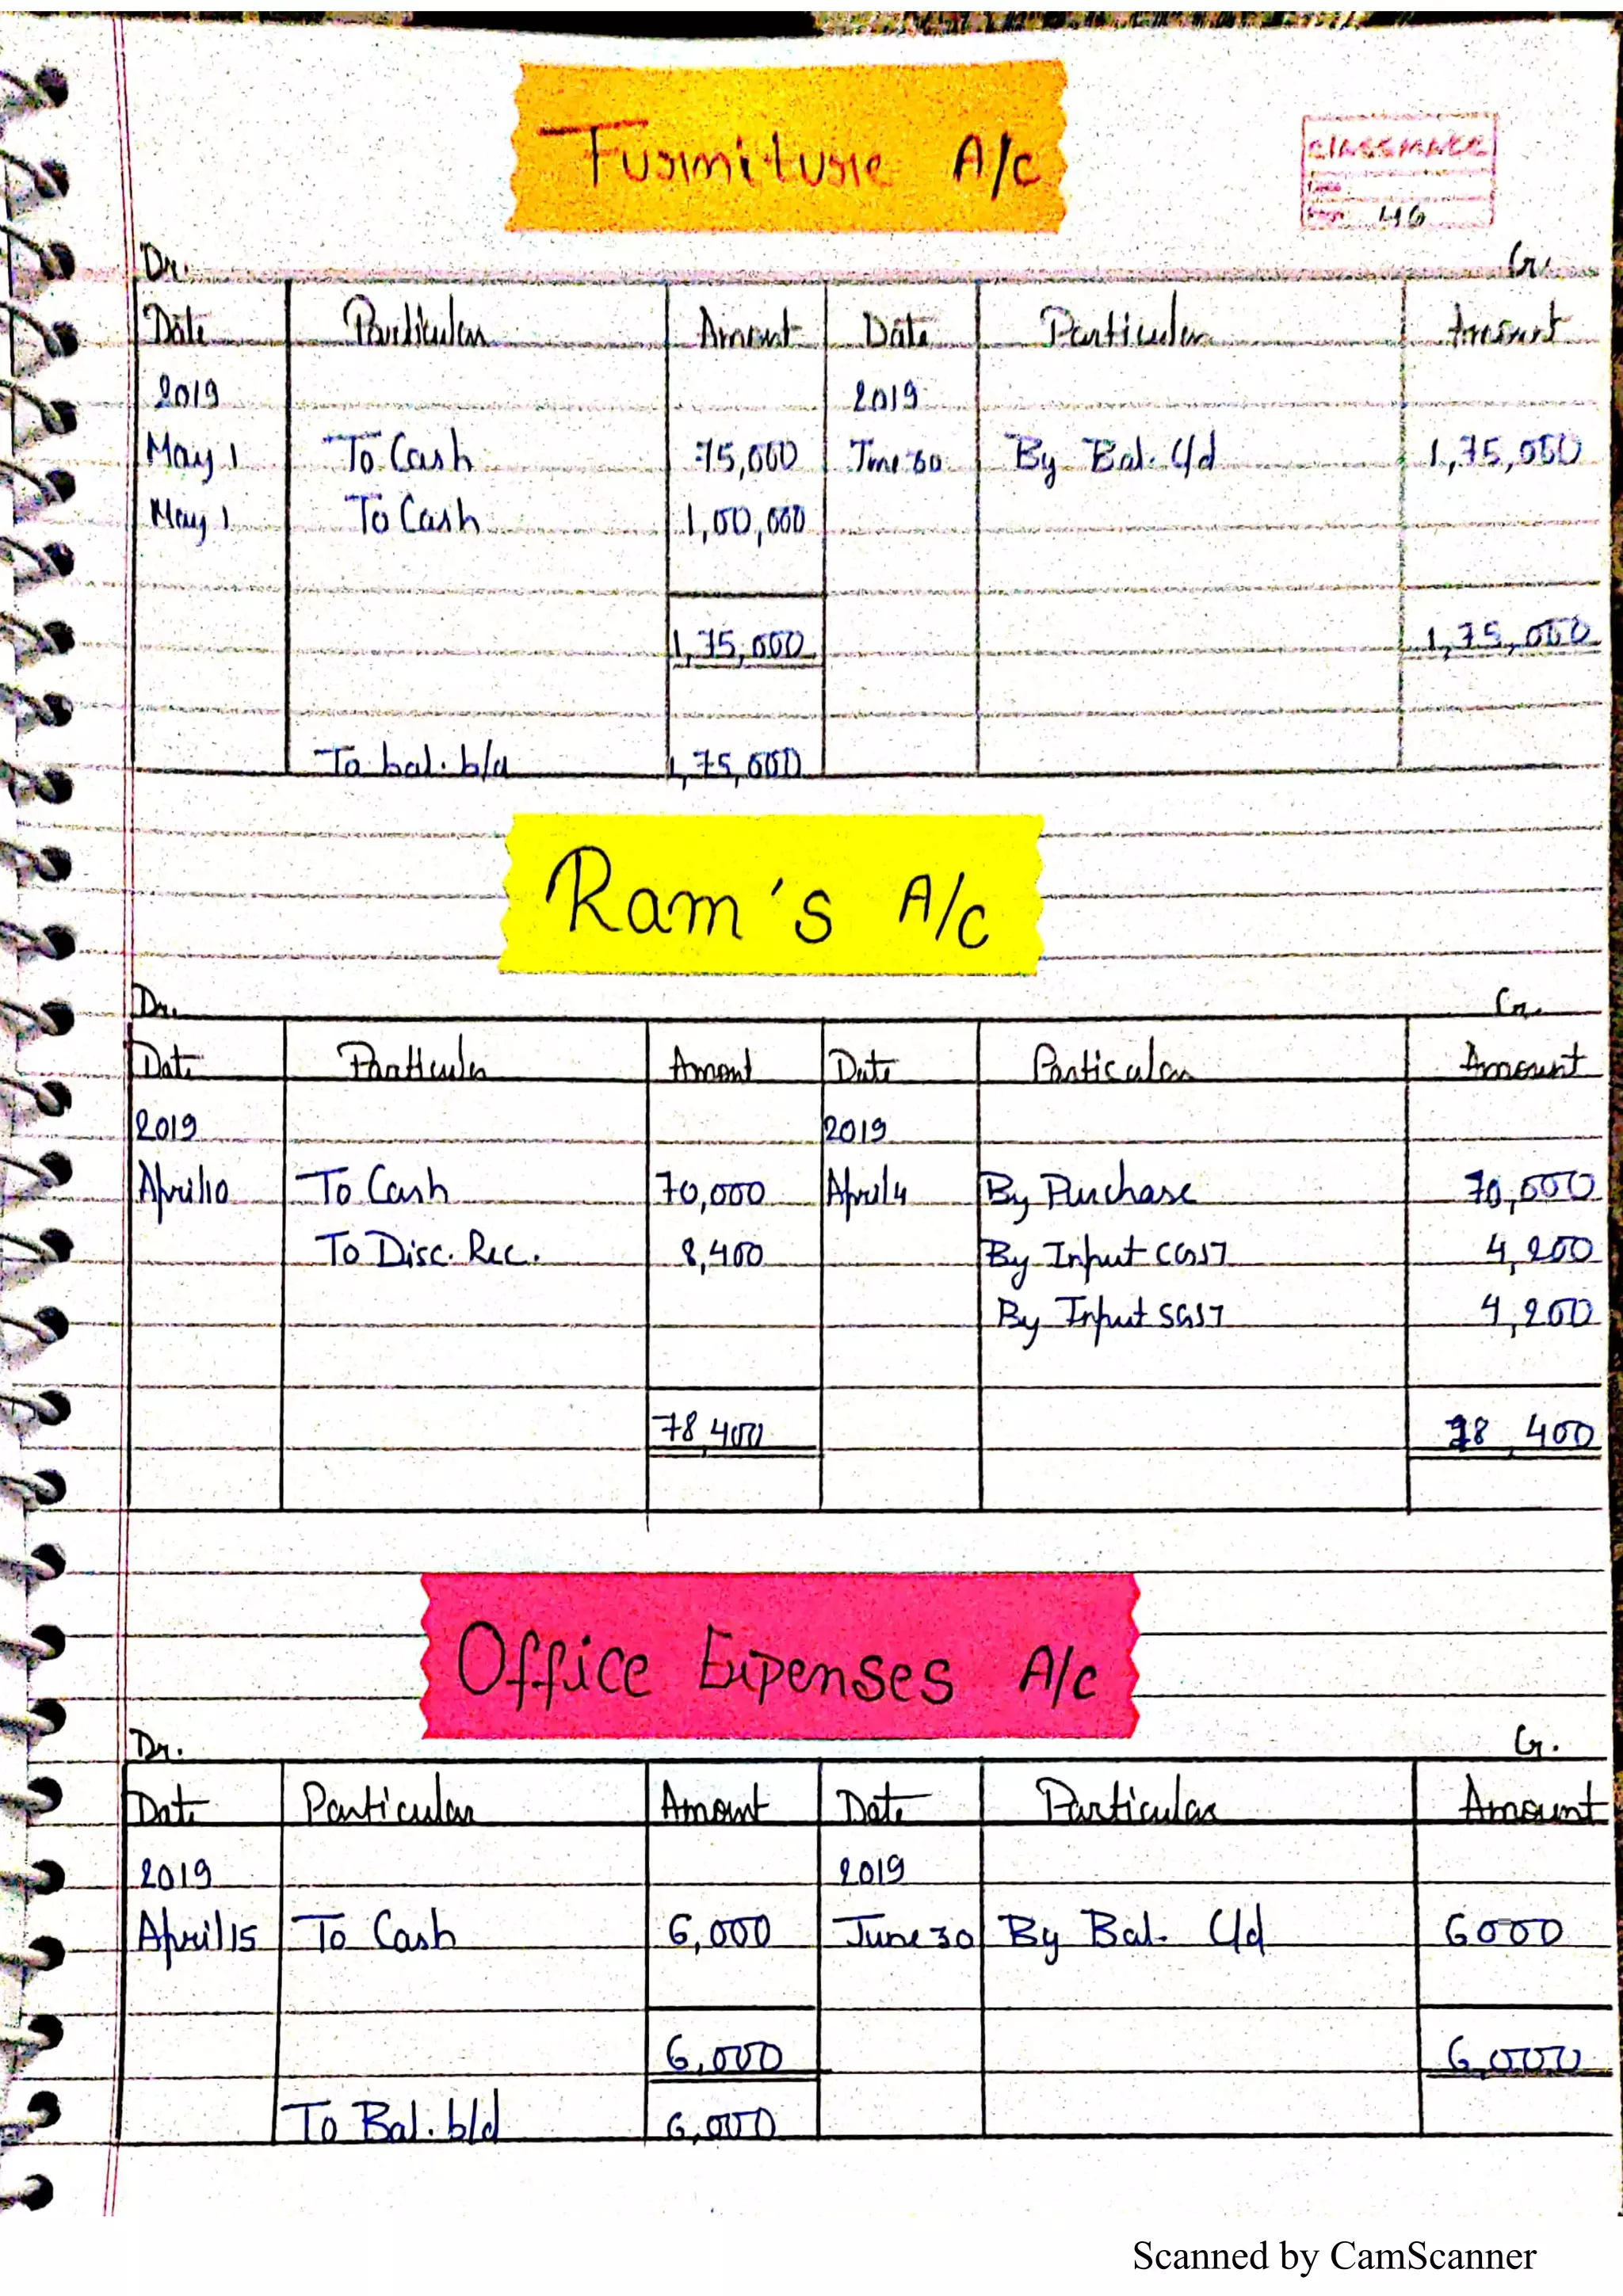 Furniture A/c
classmate
Date
Page 46
Dr. Cr.
Date Particular Amount Date Particular Amount
2019 2019
May 1 To Cash 75,000 June 30 By Bal. C/d 1,75,000
May 1 To Cash 1,00,000
1,75,000 1,75,000
To bal. b/d 1,75,000
Ram's A/c
Dr. Cr.
Date Particular Amount Date Particular Amount
2019 2019
April 10 To Cash 70,000 April 4 By Purchase 70,000
To Disc. Rec. 8,400 By Input CGST 4,200
By Input SGST 4,200
78,400 78,400
Office Expenses A/c
Dr. Cr.
Date Particular Amount Date Particular Amount
2019 2019
April 15 To Cash 6,000 June 30 By Bal. C/d 6000
6,000 6,000
To Bal. b/d 6,000
Scanned by CamScanner